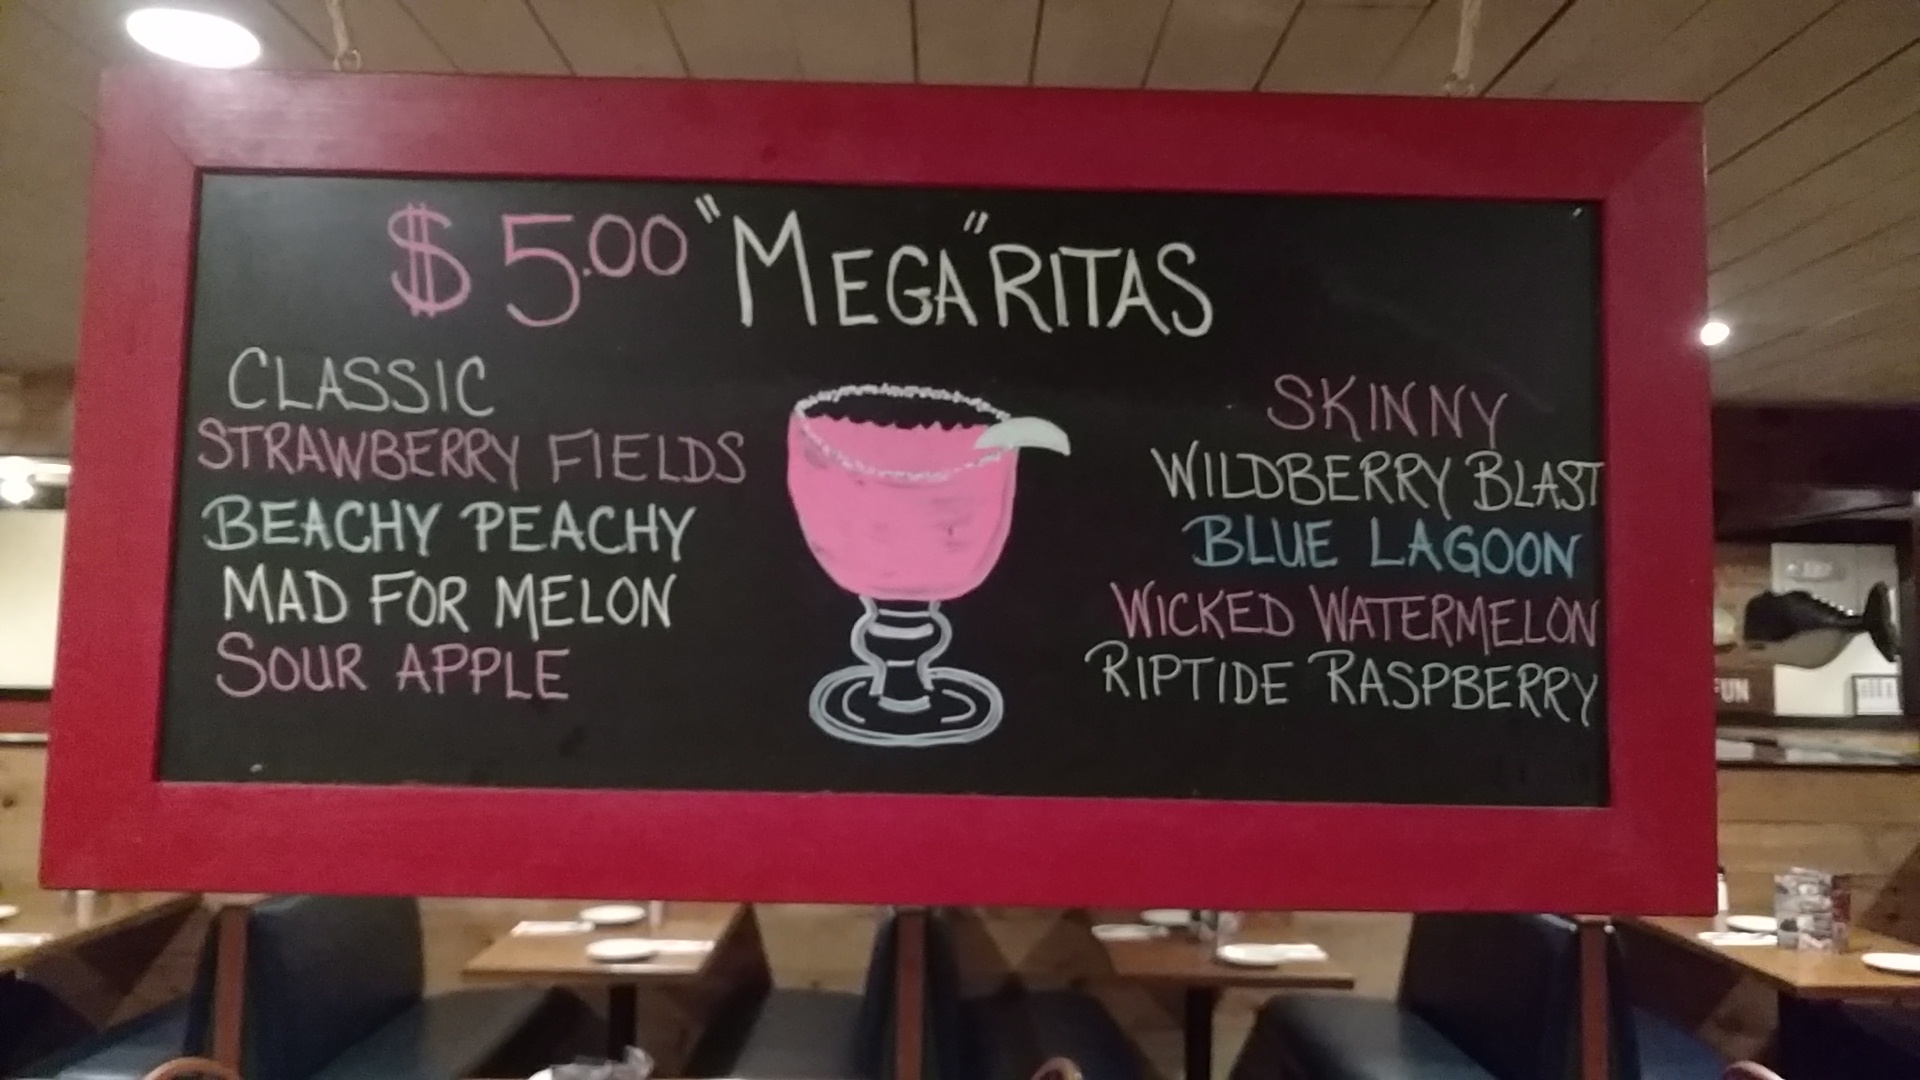 $5.00 "MEGA"RITAS
CLASSIC
STRAWBERRY FIELDS
BEACHY PEACHY
MAD FOR MELON
SOUR APPLE
SKINNY
WILDBERRY BLAST
BLUE LAGOON
WICKED WATERMELON
RIPTIDE RASPBERRY
FUN